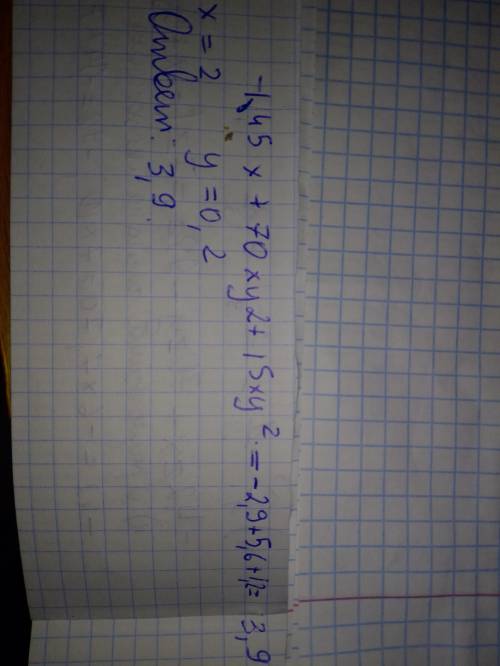 -1,45 x + 70 xy2 + 15xy² = -2,9+5,6+1,2= 3,9
x = 2 y = 0,2
Ответ: 3,9.